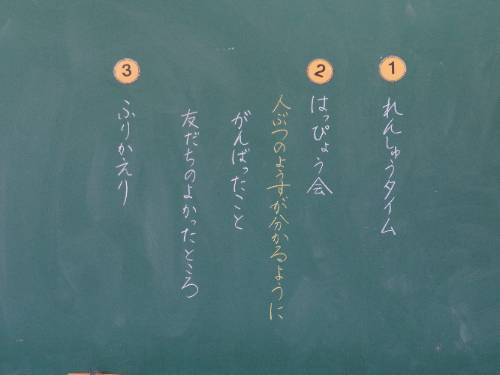 1 れんしゅうタイム
2 はっぴょう会
人ぶつのようすが分かるように
がんばったこと
友だちのよかったところ
3 ふりかえり